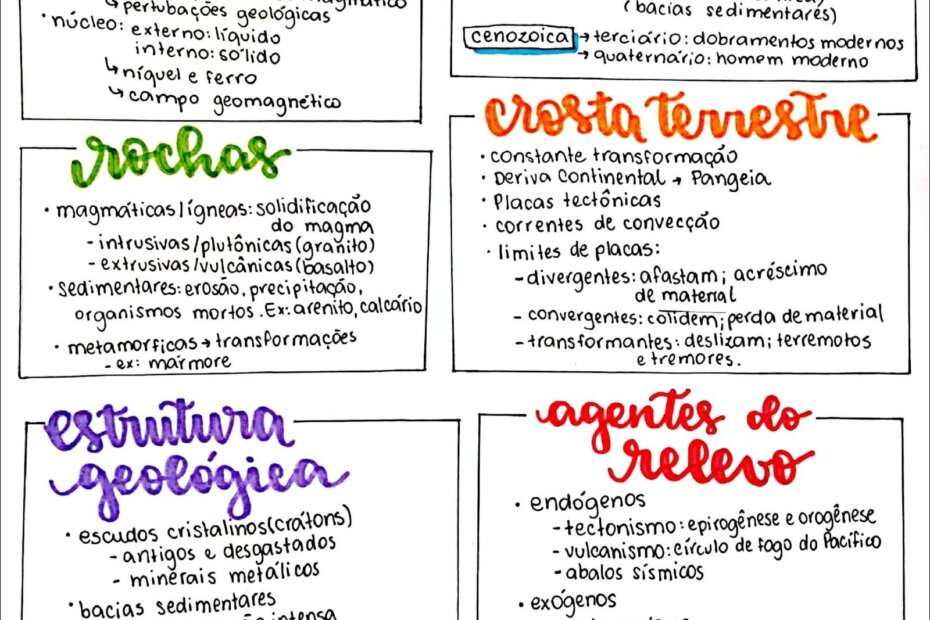 ↳ pertubações geológicas
• núcleo: externo: líquido
interno: sólido
↳ níquel e ferro
↳ campo geomagnético
(bacias sedimentares)
cenozoica → terciário: dobramentos modernos
→ quaternário: homem moderno
rochas
• magmáticas/ígneas: solidificação
do magma
- intrusivas/plutônicas (granito)
- extrusivas/vulcânicas (basalto)
• sedimentares: erosão, precipitação,
organismos mortos. Ex: arenito, calcário
• metamorficas → transformações
- ex: mármore
crosta terrestre
• constante transformação
• Deriva Continental → Pangeia
• Placas tectônicas
• correntes de convecção
• limites de placas:
- divergentes: afastam; acréscimo
de material
- convergentes: colidem; perda de material
- transformantes: deslizam; terremotos
e tremores.
estrutura
geológica
• escudos cristalinos (crátons)
- antigos e desgastados
- minerais metálicos
• bacias sedimentares
intensa
agentes do
relevo
• endógenos
- tectonismo: epirogênese e orogênese
- vulcanismo: círculo de fogo do Pacífico
- abalos sísmicos
• exógenos